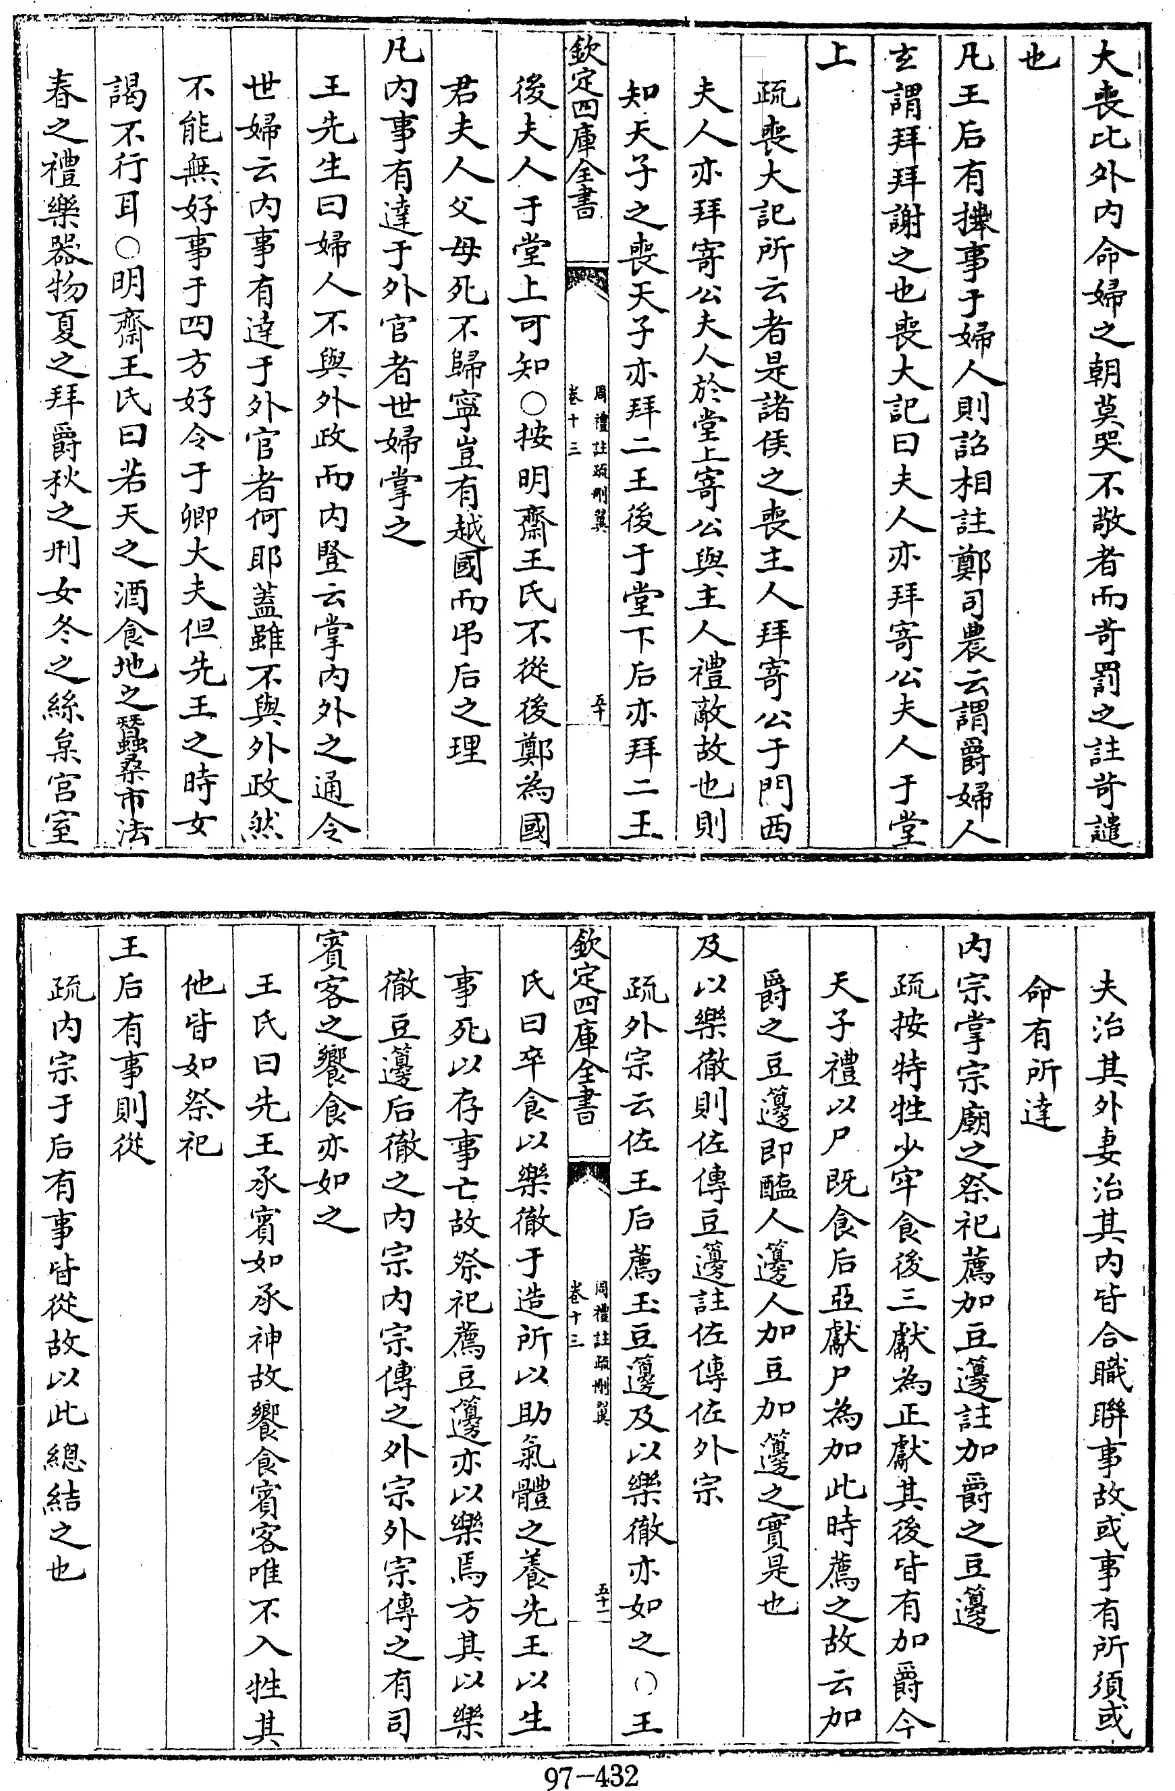 大喪比外内命婦之朝莫哭不敬者而苛罰之註苛譴
也
凡王后有𢷎事于婦人則詔相註鄭司農云謂爵婦人
玄謂拜拜謝之也喪大記曰夫人亦拜寄公夫人于堂
上
疏喪大記所云者是諸侯之喪主人拜寄公于門西
夫人亦拜寄公夫人於堂上寄公與主人禮敵故也則
知天子之喪天子亦拜二王後于堂下后亦拜二王
欽定四庫全書
周禮註疏刪翼
卷十三
五十
後夫人于堂上可知○按明齋王氏不從後鄭為國
君夫人父母死不歸寧豈有越國而弔后之理
凡内事有達于外官者世婦掌之
王先生曰婦人不與外政而内豎云掌内外之通令
世婦云内事有達于外官者何耶蓋雖不與外政然
不能無好事于四方好令于卿大夫但先王之時女
謁不行耳○明齋王氏曰若天之酒食地之蠶桑市法
春之禮樂器物夏之拜爵秋之刑女冬之絲枲宮室
夫治其外妻治其内皆合職聯事故或事有所須或
命有所達
内宗掌宗廟之祭祀薦加豆籩註加爵之豆籩
疏按特牲少牢食後三獻為正獻其後皆有加爵今
天子禮以尸既食后亞獻尸為加此時薦之故云加
爵之豆籩即醢人籩人加豆加籩之實是也
及以樂徹則佐傳豆籩註佐傳佐外宗
疏外宗云佐王后薦玉豆籩及以樂徹亦如之○王
欽定四庫全書
周禮註疏刪翼
卷十三
五十一
氏曰卒食以樂徹于造所以助氣體之養先王以生
事死以存事亡故祭祀薦豆籩亦以樂焉方其以樂
徹豆籩后徹之内宗内宗傳之外宗外宗傳之有司
賓客之饗食亦如之
王氏曰先王承賓如承神故饗食賓客唯不入牲其
他皆如祭祀
王后有事則從
疏内宗于后有事皆從故以此總結之也
97-432